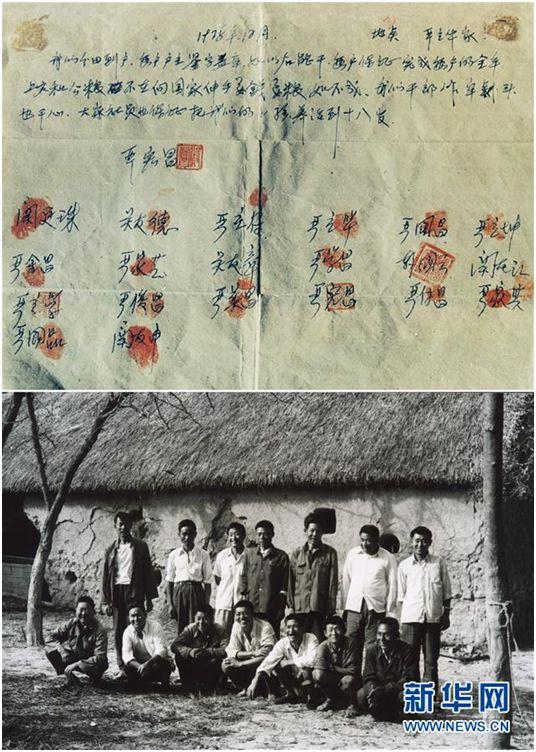 1978年12月. 地点 严立华家.
我们分田到户,每户户主签字盖章,如以后能干,每户保证完成每户的全年
上交和公粮 不在向国家伸手要钱要粮 如不成,我们干部作牢刹头
也干心,大家社员也保证把我们的小孩养活到十八岁
严宏昌
关廷珠 关友德 严立符 严立华 严国昌 严立坤
严金昌 严家芝 关友章 严学昌 韩国云 关友江
严立学 严俊昌 严美昌 严宏昌 严付昌 严家其
严国品 关友申
新华网
WWW.NEWS.CN